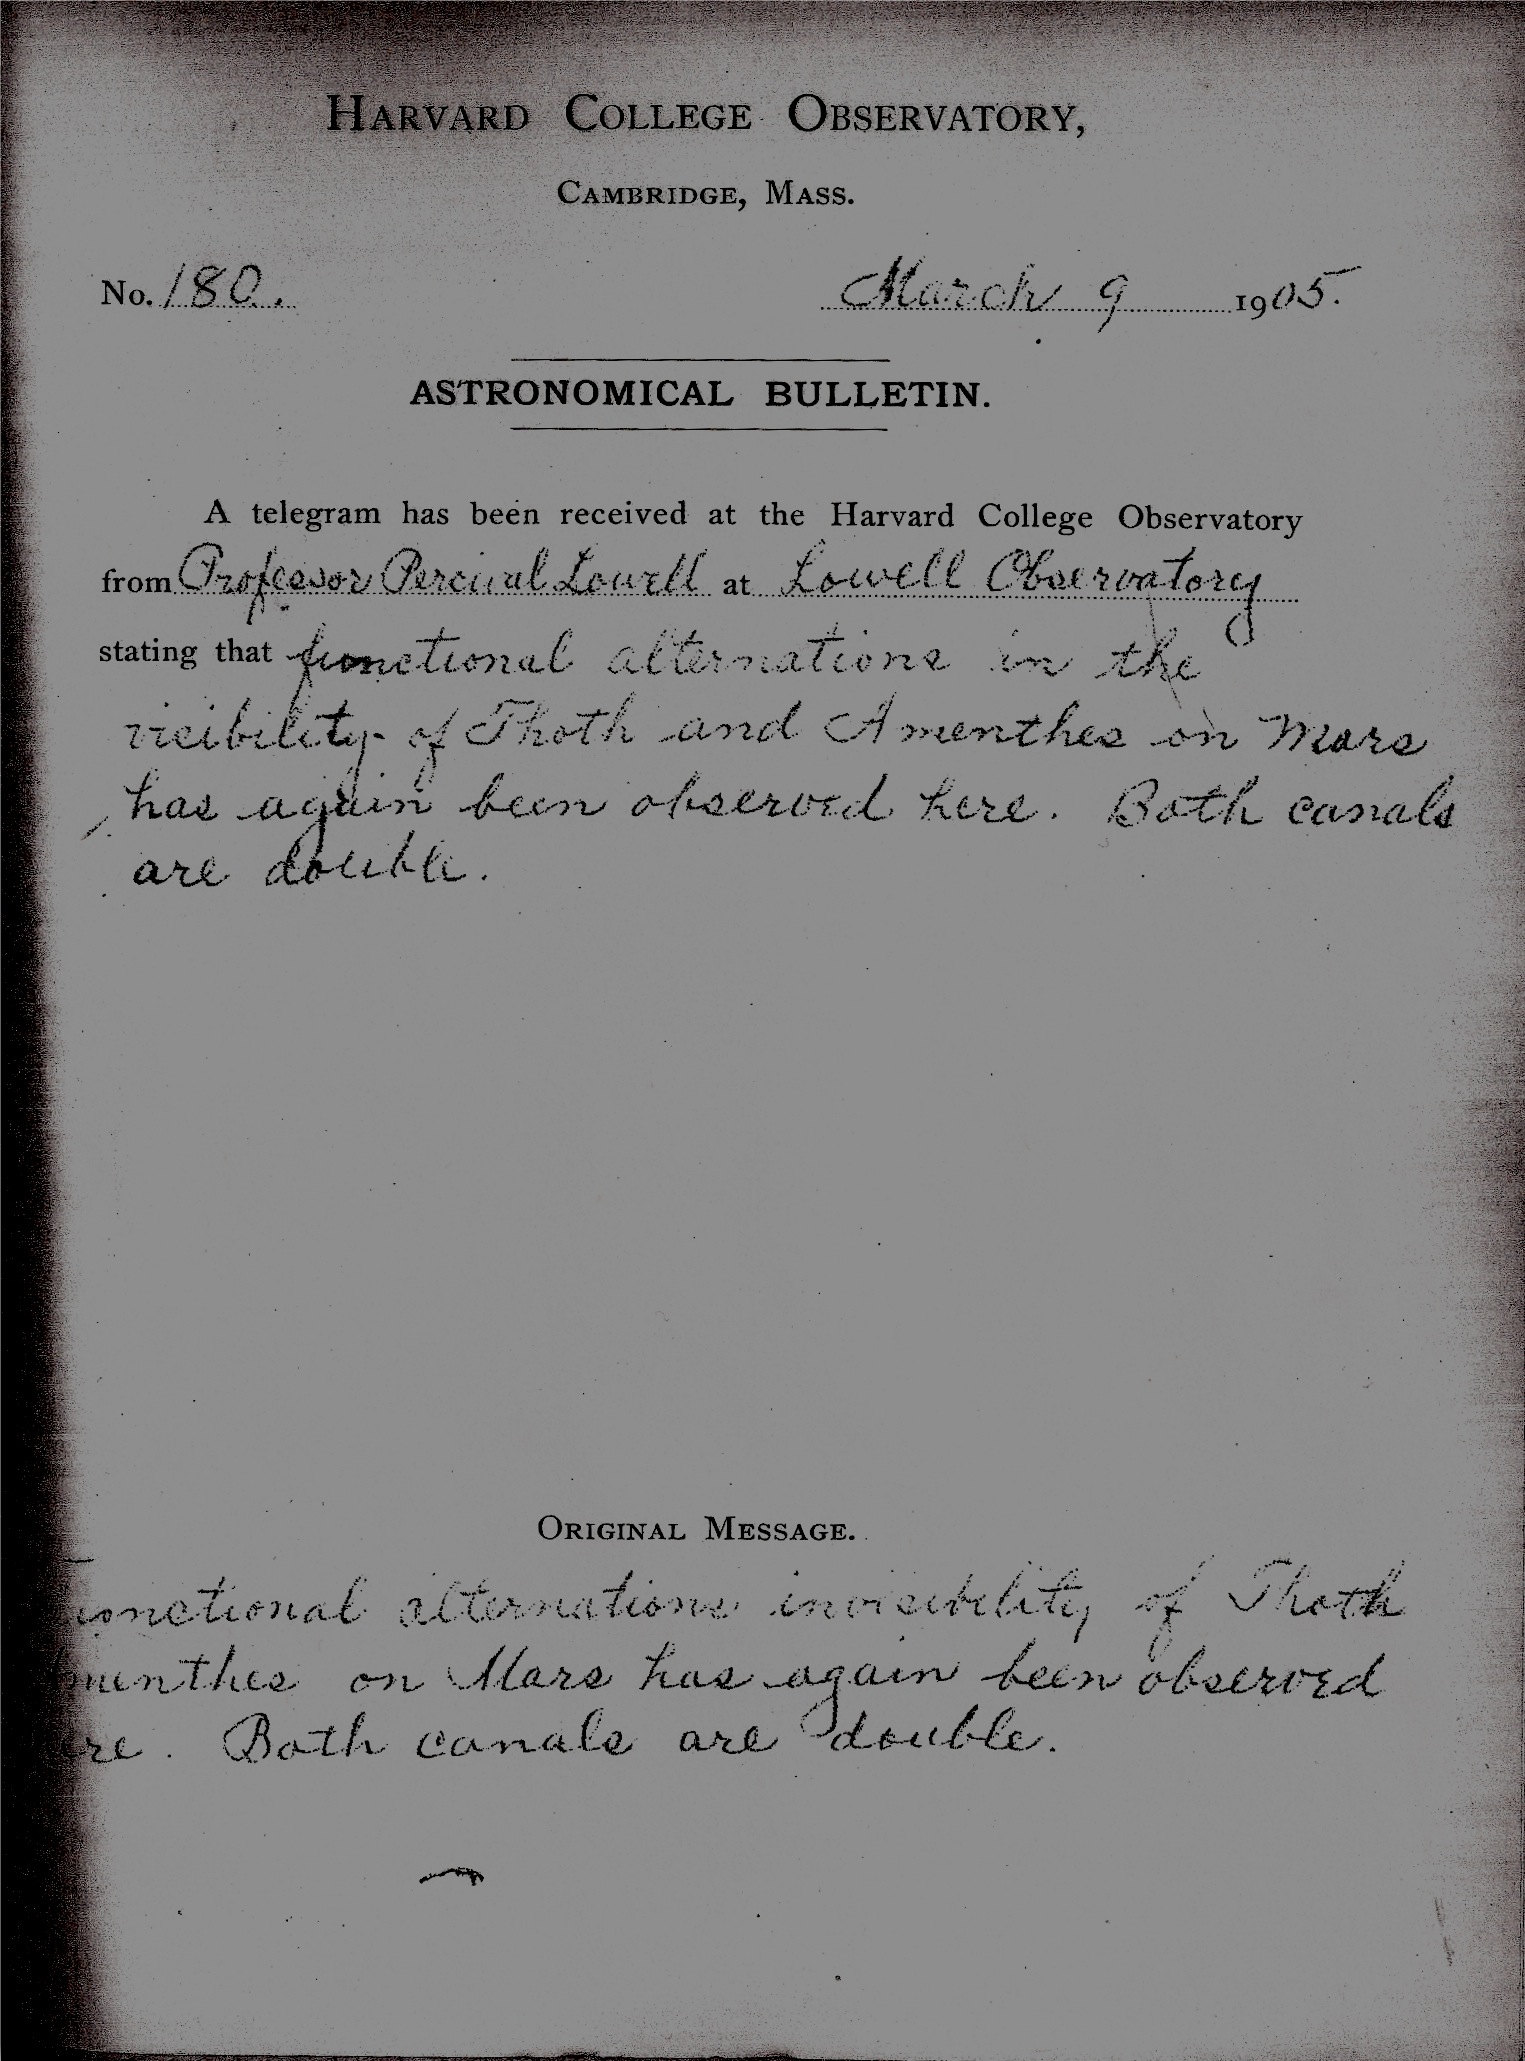 HARVARD COLLEGE OBSERVATORY,
CAMBRIDGE, MASS.
No. 180. March 9 1905.
ASTRONOMICAL BULLETIN.
A telegram has been received at the Harvard College Observatory
from Professor Percival Lowell at Lowell Observatory
stating that functional alternations in the
visibility of Thoth and Amenthes on Mars
has again been observed here. Both canals
are double.
ORIGINAL MESSAGE.
unctional alternations invisibility of Thoth
menthes on Mars has again been observed
ere. Both canals are double.